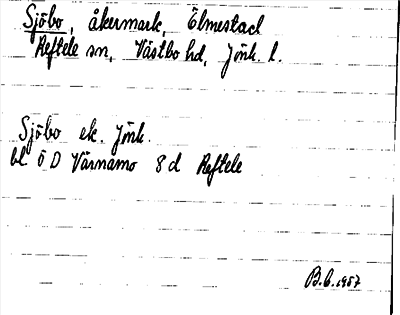 Sjöbo, åkermark, Ölmestad
Reftele sn, Västbo hd, Jönk. l.
Sjöbo ek. Jönk.
bl 5 D Värnamo 8 d Reftele
B.G. 1957